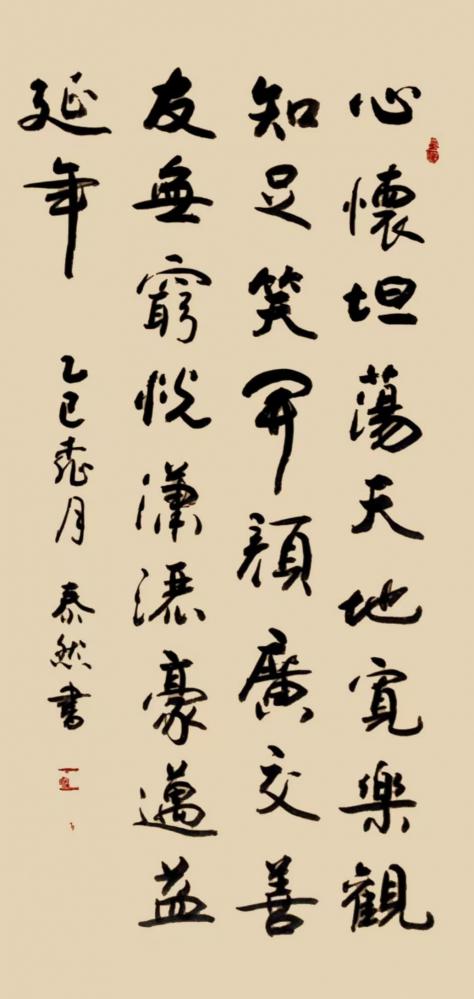 心懷坦蕩天地寬樂觀
知足笑開顏廣交善
友無窮悅瀟灑豪邁益
延年
乙巳荷月 泰然書